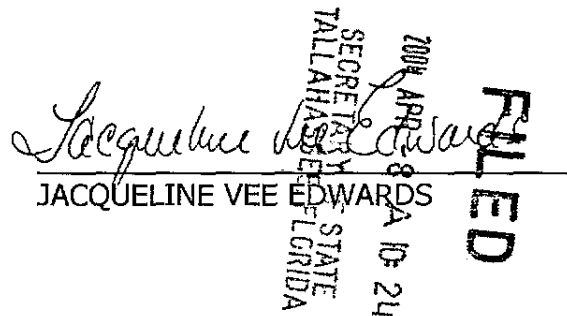 Jacqueline Vee Edwards
JACQUELINE VEE EDWARDS
FILED
2004 APR 8 A 10: 24
SECRETARY STATE
TALLAHASSEE FLORIDA